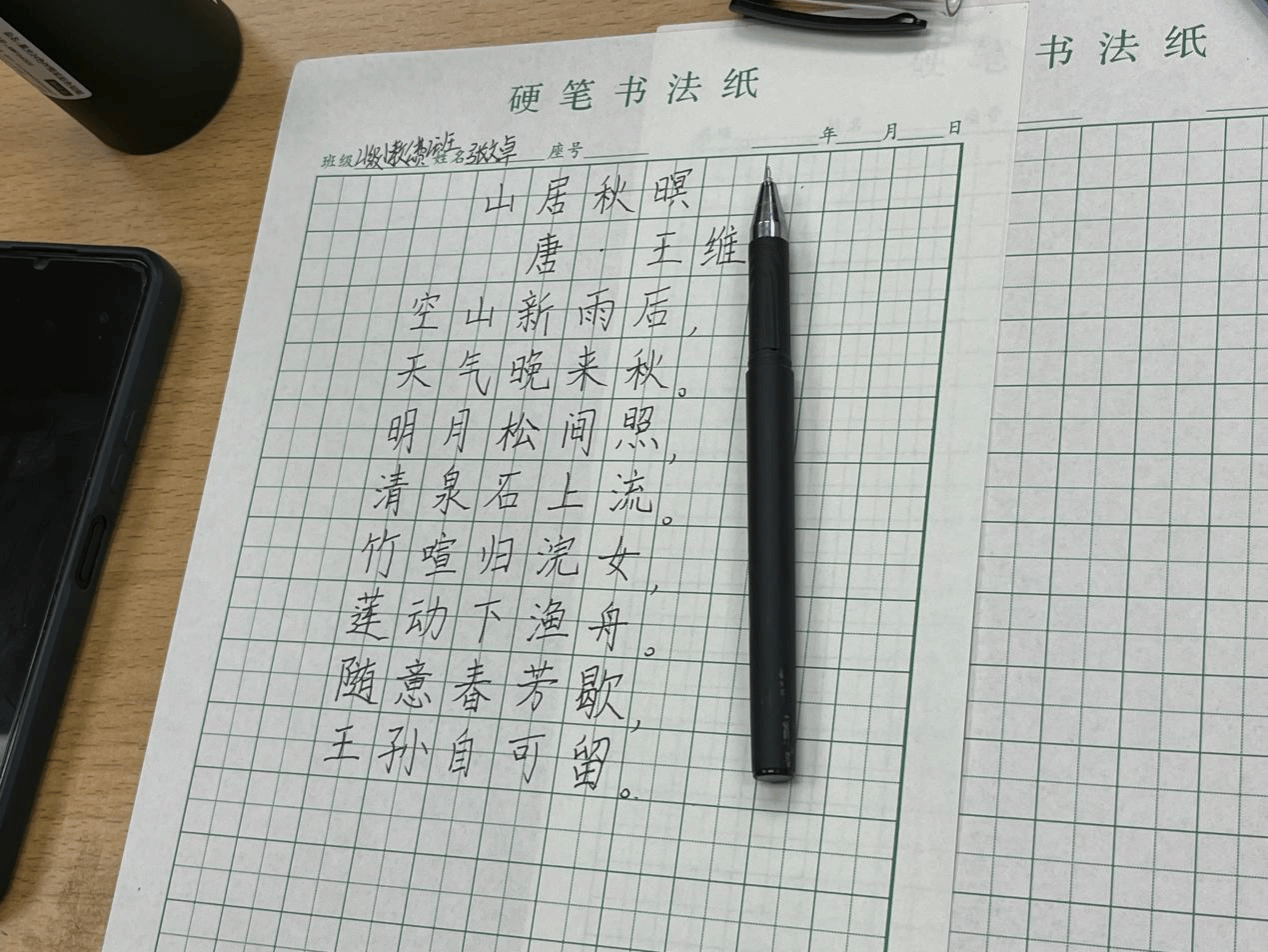 硬笔书法纸
书法纸
班级 姓名张文卓 座号 年 月 日
山居秋暝
唐·王维
空山新雨后,
天气晚来秋。
明月松间照,
清泉石上流。
竹喧归浣女,
莲动下渔舟。
随意春芳歇,
王孙自可留。